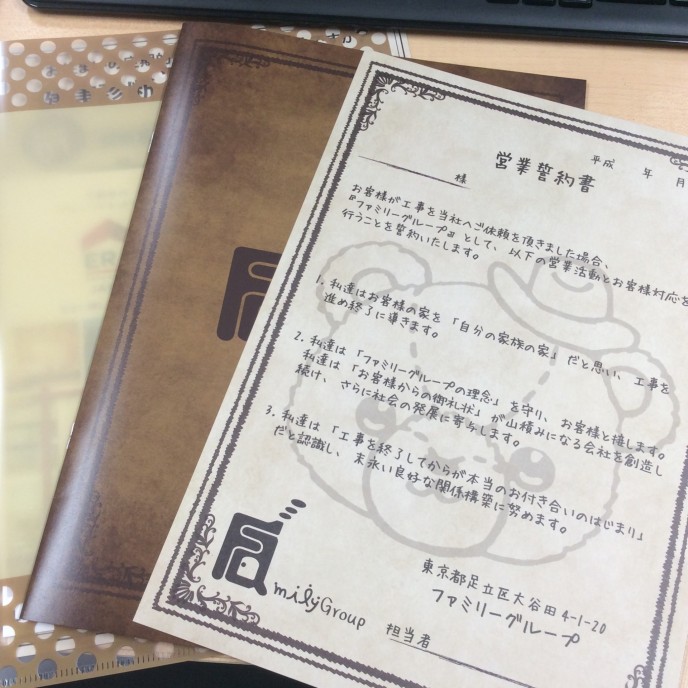 営業誓約書
平成 年 月
様
お客様が工事を当社へご依頼を頂きました場合、
『ファミリーグループ』として、以下の営業活動とお客様対応を
行うことを誓約いたします。
1. 私達はお客様の家を「自分の家族の家」だと思い、工事を
進め終了に導きます。
2. 私達は「ファミリーグループの理念」を守り、お客様と接します。
私達は「お客様からの御礼状」が山積みになる会社を創造し
続け、さらに社会の発展に寄与します。
3. 私達は「工事を終了してからが本当のお付き合いのはじまり」
だと認識し、末永い良好な関係構築に努めます。
東京都足立区大谷田 4-1-20
ファミリーグループ
milyGroup
担当者